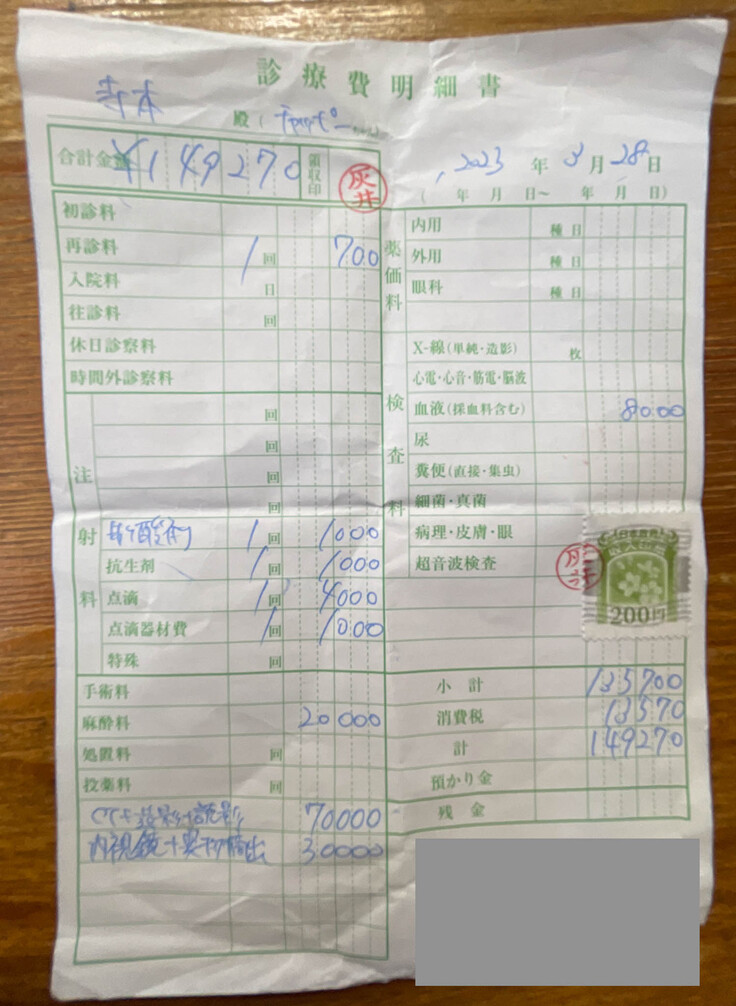 診療費明細書
寺本 殿(チャッピー
合計金額 ¥149270 領収印 灰井
2023年 3月 28日
( 年 月 日~ 年 月 日)
初診料
再診料 1回 700
入院料 日
往診料 回
休日診察料
時間外診察料
注射料
回
回
回
回
制酸剤 1回 1000
抗生剤 1回 1000
点滴 1回 4000
点滴器材費 1回 1000
特殊 回
手術料
麻酔料 20000
処置料 回
投薬料 回
CT+造影+読影 70000
内視鏡+異物摘出 30000
薬価料
内用 種日
外用 種日
眼科 種日
検査料
X-線(単純・造影) 枚
心電・心音・筋電・脳波
血液(採血料含む) 8000
尿
糞便(直接・集虫)
細菌・真菌
病理・皮膚・眼
超音波検査
200円
小計 135700
消費税 13570
計 149270
預かり金
残金